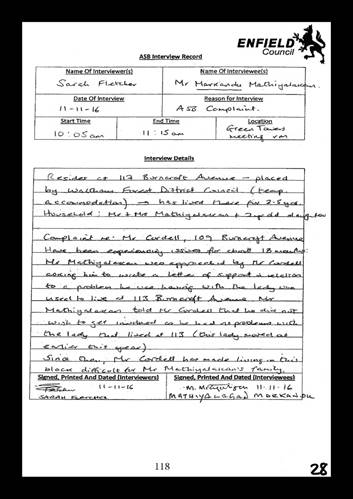 ENFIELD
Council
ASB Interview Record
Name Of Interviewer(s)
Name Of Interviewee(s)
Sarah Fletcher
Mr Markandu Mathiyalagan.
Date Of Interview
Reason for Interview
11-11-16
ASB Complaint.
Start Time
End Time
Location
10:05am
11:15am
Green Towers
meeting rm
Interview Details
Resides at 117 Burncroft Avenue - placed
by Waltham Forest District Council (temp
accommodation) → has lived there for 2.5 yrs.
Household: Mr + Mrs Mathiyalagan + 2yr old daughter
Complaint re: Mr Cordell, 109 Burncroft Avenue
Have been experiencing issues for about 18 months
Mr Mathiyalagan was approached by Mr Cordell
asking him to write a letter of support in relation
to a problem he was having with the lady who
used to live at 113 Burncroft Avenue. Mr
Mathiyalagan told Mr Cordell that he did not
wish to get involved as he had no problem with
the lady that lived at 113 (the lady moved out
earlier this year).
Since then, Mr Cordell has made living in this
block difficult for Mr Mathiyalagan's family.
Signed, Printed And Dated (Interviewers)
Signed, Printed And Dated (Interviewees)
11-11-16
11-11-16
SARAH FLETCHER
MATHIYALAGAN MARKANDU
118
28